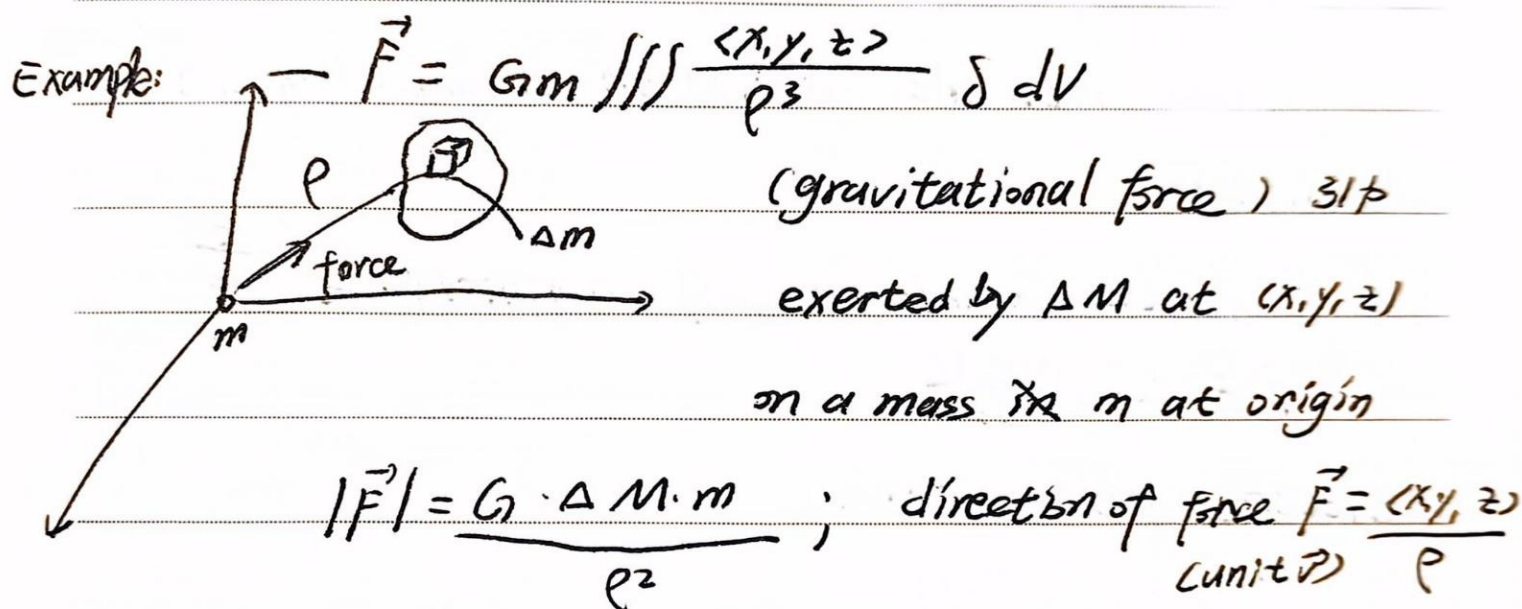 Example: — F⃗ = Gm ∭ <x,y,z>/ρ³ δ dV
ρ
(gravitational force)
Δm
force
exerted by ΔM at (x,y,z)
m
on a mass m at origin
|F⃗| = G·ΔM·m/ρ² ; direction of force F⃗ = <x,y,z>/ρ
(unit v⃗)